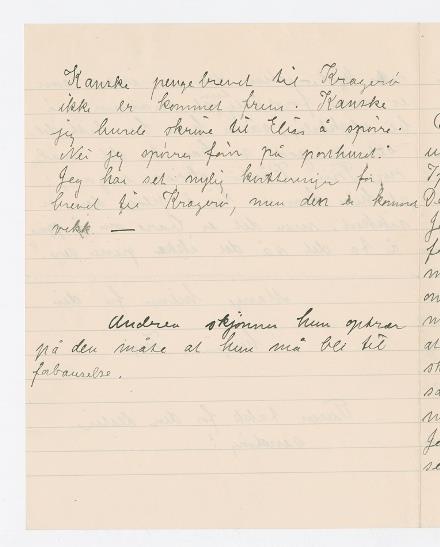 Kanske pengebrevet til Kragerø
ikke er kommet frem. Kanske
jeg burde skrive til Elias å spørre.
Nei jeg spørrer først på posthuset."
Jeg har set nylig kvitteringer for
brevet til Kragerø, men den er kommet
vekk —
Andrea skjønner hun optrær
på den måte at hun må bli til
forbauselse.